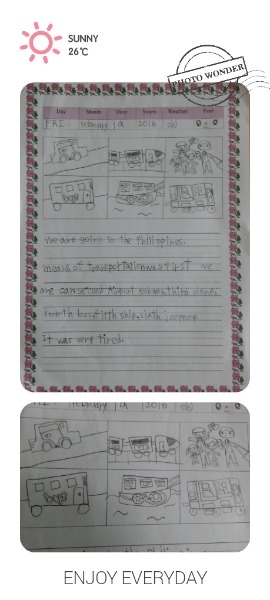 SUNNY
26℃
PHOTO WONDER
Day Month Date Years Weather Feel
FRI. February 19 2016
We are going to the Philippines.
means of transportation was first we
are car second airport third plane.
Fourth bus fifth ship, sixth jeepney
It was very tired.
February 19 2016
ENJOY EVERYDAY